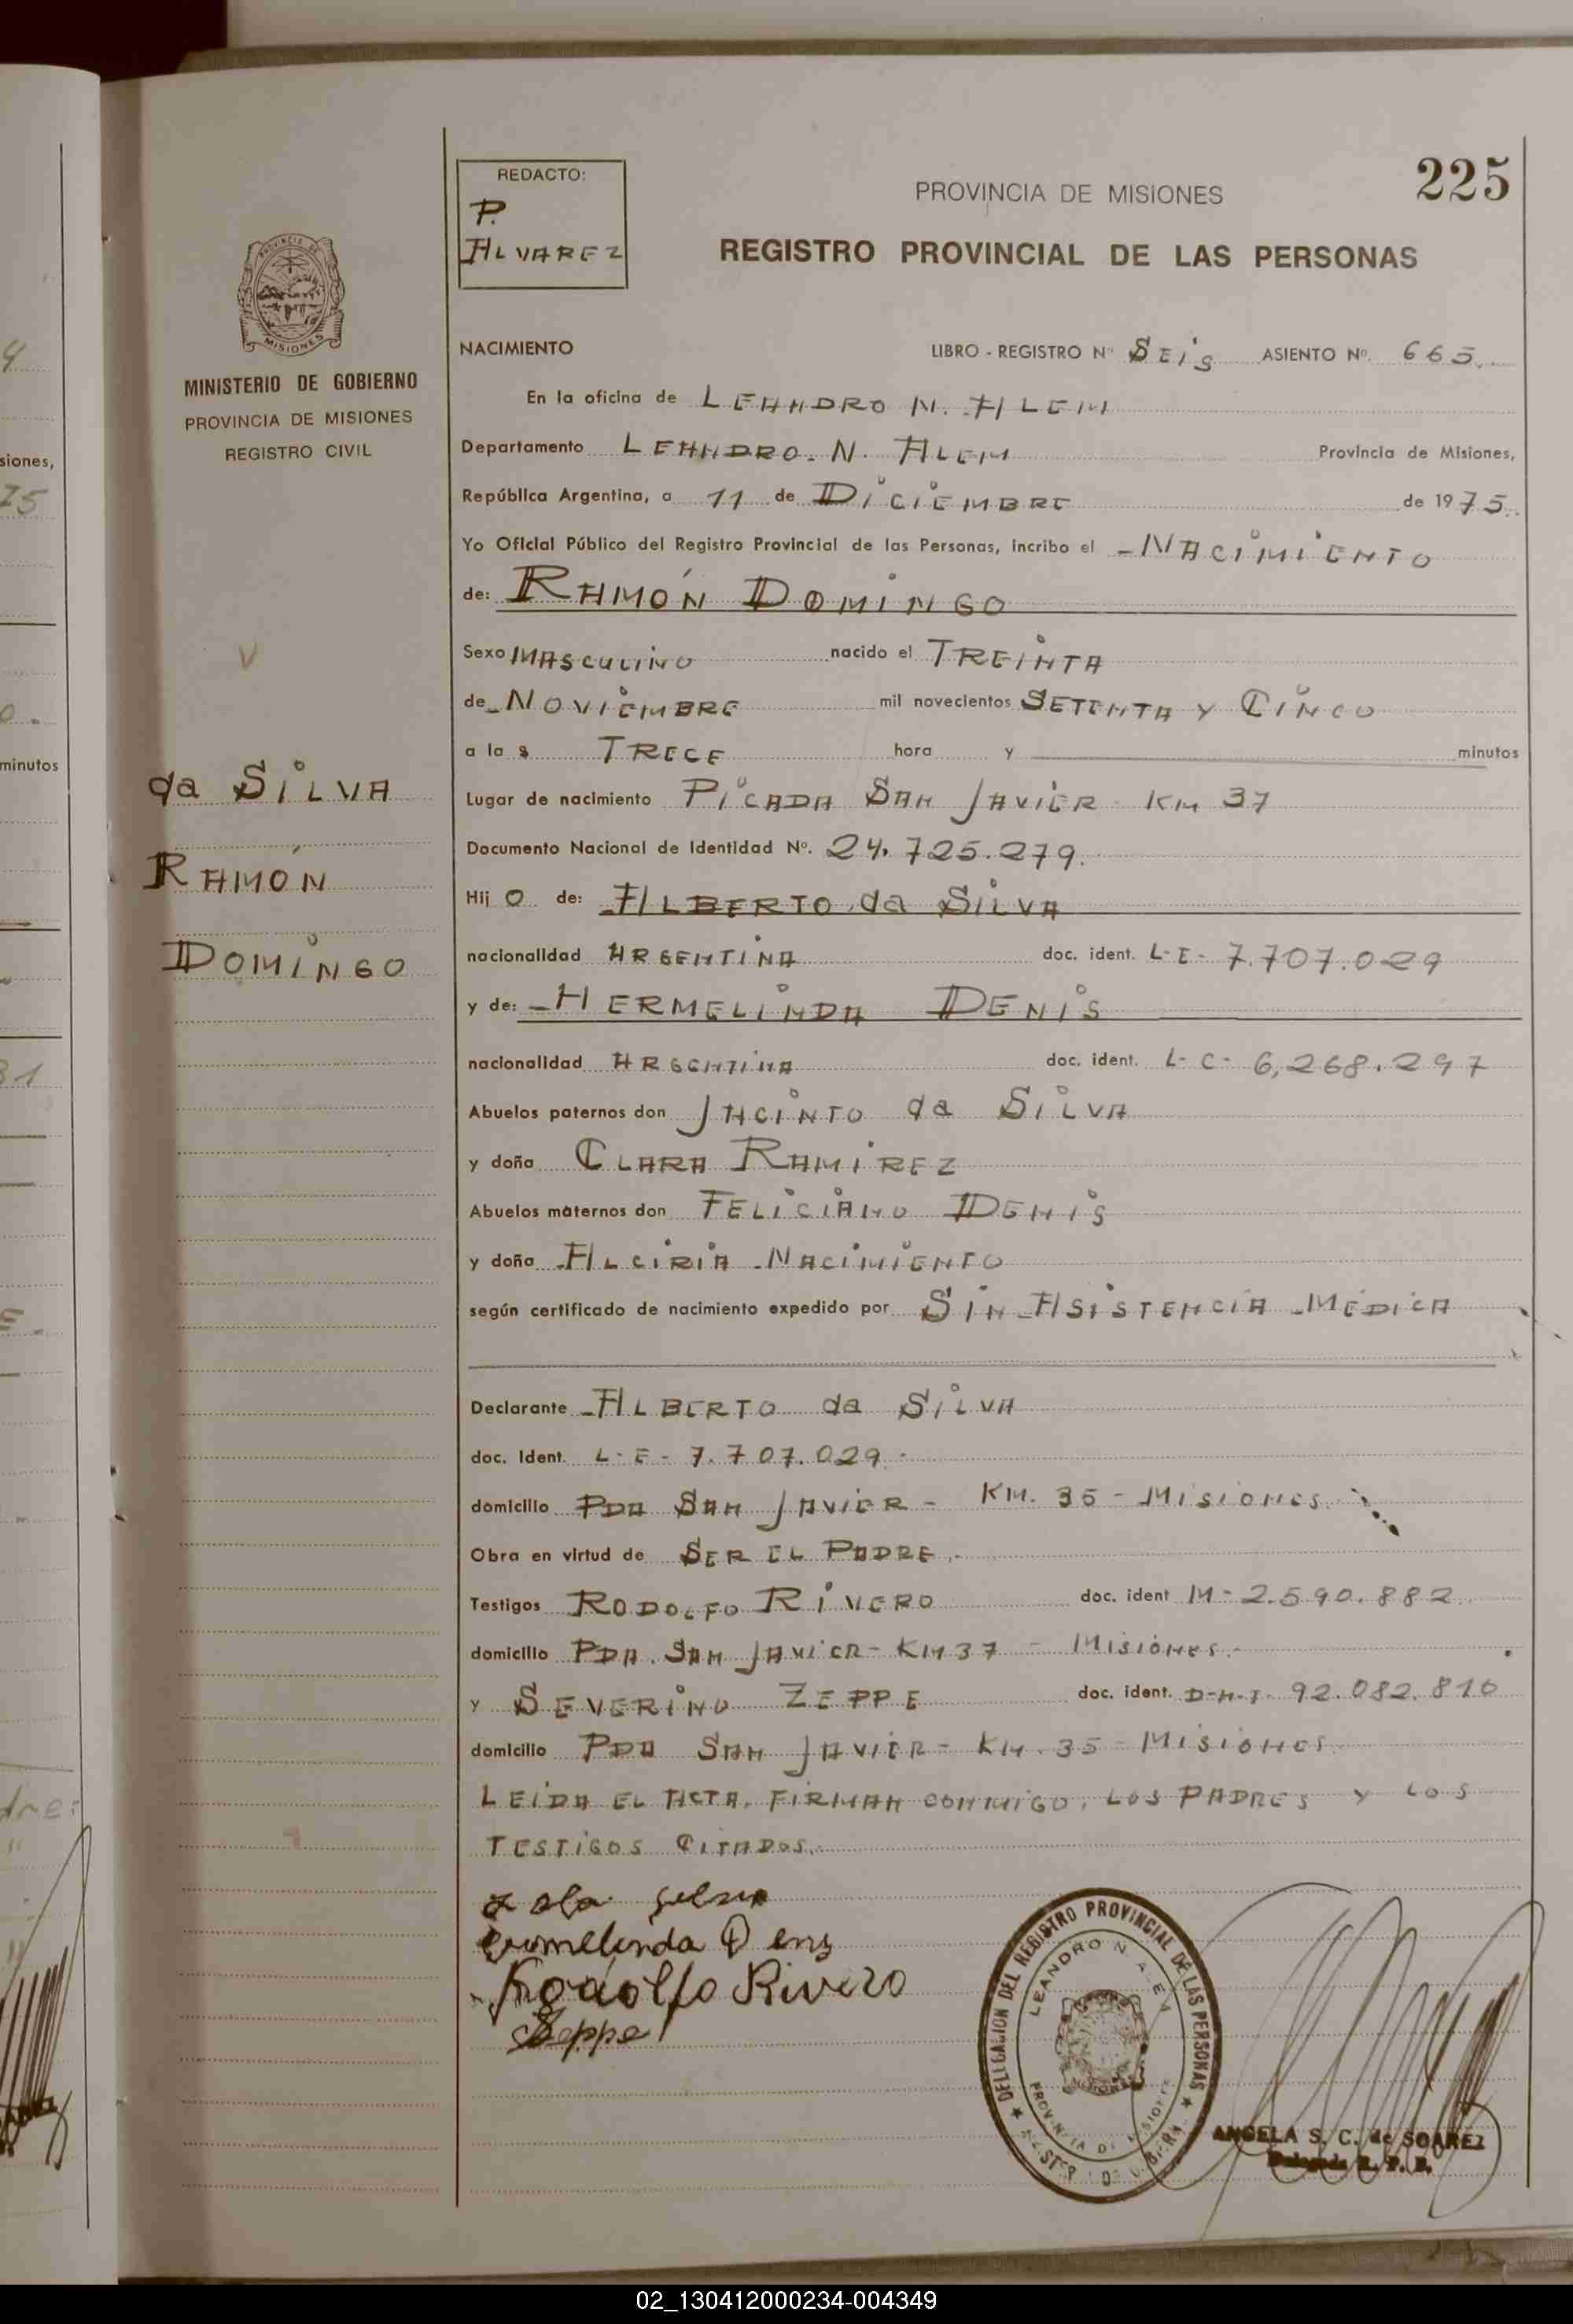 225
REDACTO:
P.
ALVAREZ
PROVINCIA DE MISIONES
REGISTRO PROVINCIAL DE LAS PERSONAS
MISIONES
MINISTERIO DE GOBIERNO
PROVINCIA DE MISIONES
REGISTRO CIVIL
da SILVA
RAMÓN
DOMINGO
NACIMIENTO LIBRO - REGISTRO Nº SEIS ASIENTO Nº. 665.
En la oficina de LEANDRO N. ALEM
Departamento LEANDRO. N. ALEM Provincia de Misiones,
República Argentina, a 11 de DICIEMBRE de 1975.
Yo Oficial Público del Registro Provincial de las Personas, incribo el NACIMIENTO
de: RAMÓN DOMINGO
Sexo MASCULINO nacido el TREINTA
de NOVIEMBRE mil novecientos SETENTA Y CINCO
a la s TRECE hora y minutos
Lugar de nacimiento PICADA SAN JAVIER KM 37
Documento Nacional de Identidad Nº. 24.725.279.
Hij O de: ALBERTO da SILVA
nacionalidad ARGENTINA doc. ident. L-E- 7.707.029
y de: HERMELINDA DENIS
nacionalidad ARGENTINA doc. ident. L-C- 6,268.297
Abuelos paternos don JACINTO da SILVA
y doña CLARA RAMIREZ
Abuelos maternos don FELICIANO DENIS
y doña ALCIRIA NACIMIENTO
según certificado de nacimiento expedido por SIN ASISTENCIA MÉDICA
Declarante ALBERTO da SILVA
doc. Ident. L-E- 7.707.029.
domicilio PDA SAN JAVIER - KM. 35 - MISIONES
Obra en virtud de SER EL PADRE.
Testigos RODOLFO RIVERO doc. ident M- 2.590.882
domicilio PDA. SAN JAVIER - KM 37 - MISIONES.
y SEVERINO ZEPPE doc. ident. D-N-I- 92.082.816
domicilio PDA SAN JAVIER - KM. 35 - MISIONES
LEIDA EL ACTA, FIRMAN CONMIGO, LOS PADRES Y LOS
TESTIGOS CITADOS.
Rodolfo Rivero
Zeppe
DELEGACION DEL REGISTRO PROVINCIAL DE LAS PERSONAS
LEANDRO N. ALEM
PROVINCIA DE MISIONES
ANGELA S. C. de SOAREZ
02_130412000234-004349